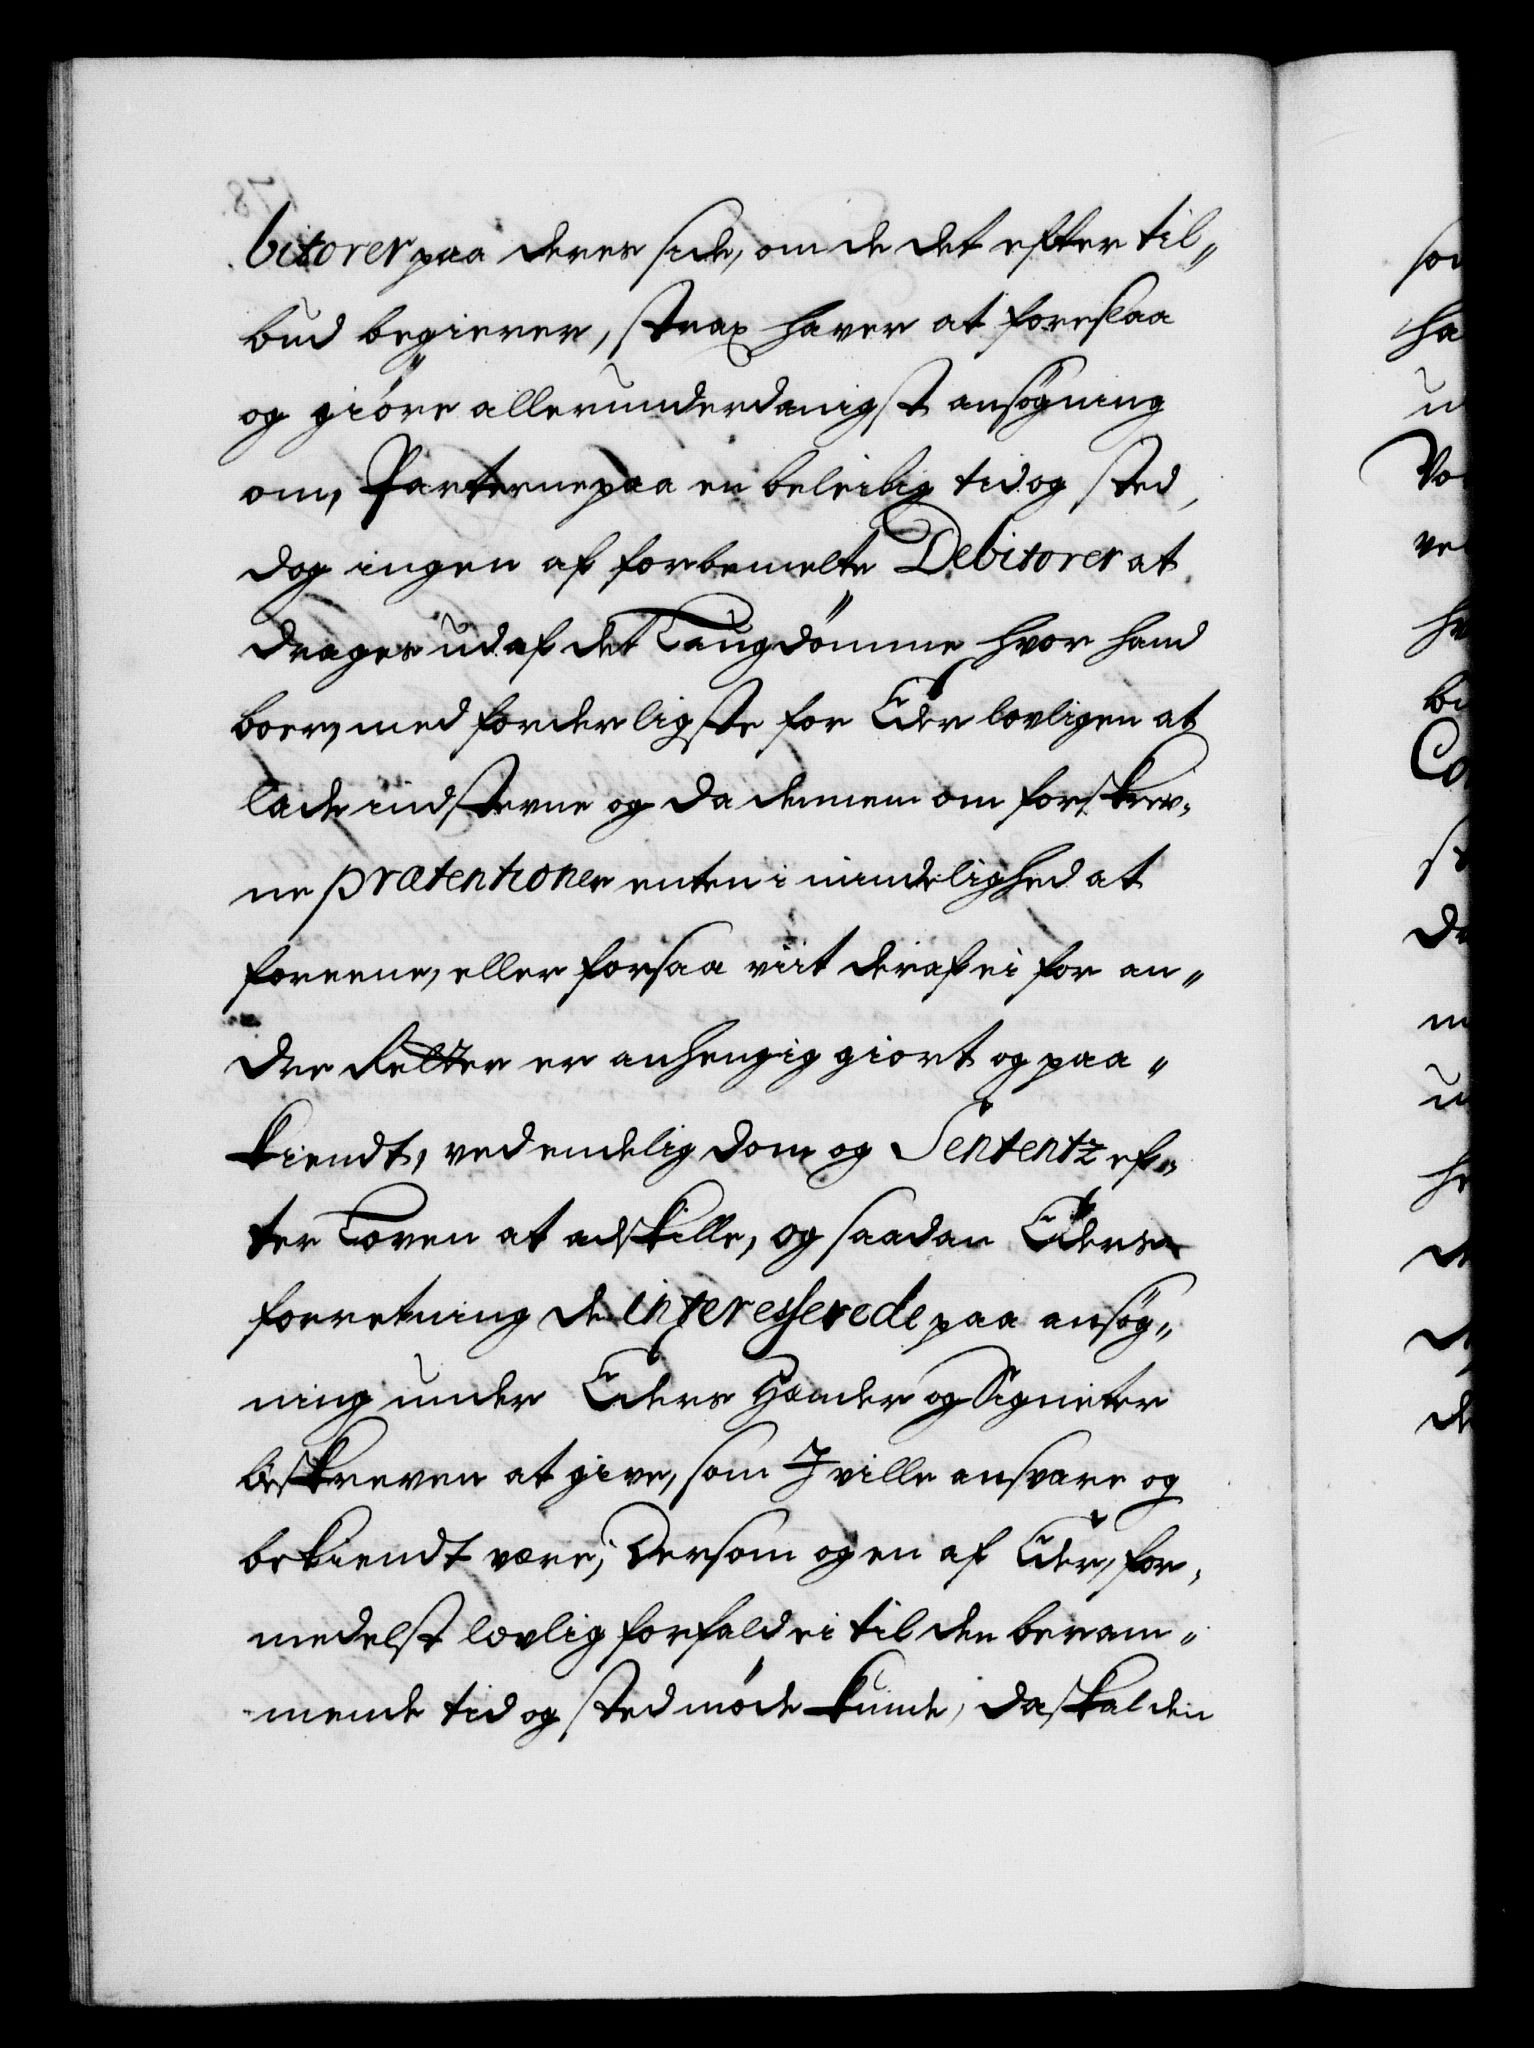 bitorer paa deres side, om de det efter til„
bud begierer, strax haver at foreslaa
og giöre allerunderdanigst ansögning
om, Parterne paa en beleilig tid og sted,
dog ingen af forbemelte Debitorer at
drages ud af det Laugdömme hvor hand
boer, med forderligste for Eder lovligen at
lade indstevne og da dennem om forskrev„
ne prætentioner enten i mindelighed at
foreene, eller forsaa vit deraf ei for an„
dre Retter er anhengig giort og paa„
kiendt, ved endelig dom og Sententz ef„
ter Loven at adskille, og saadan Eders
forretning de interesserede paa ansög„
ning under Eders Hænder og Signeter
beskreven at give, som I ville ansvare og
bekiendt være; Dersom og en af Eder, for„
medelst lovlig forfald ei til den beram„
mende tid og sted möde kunde, da skal den